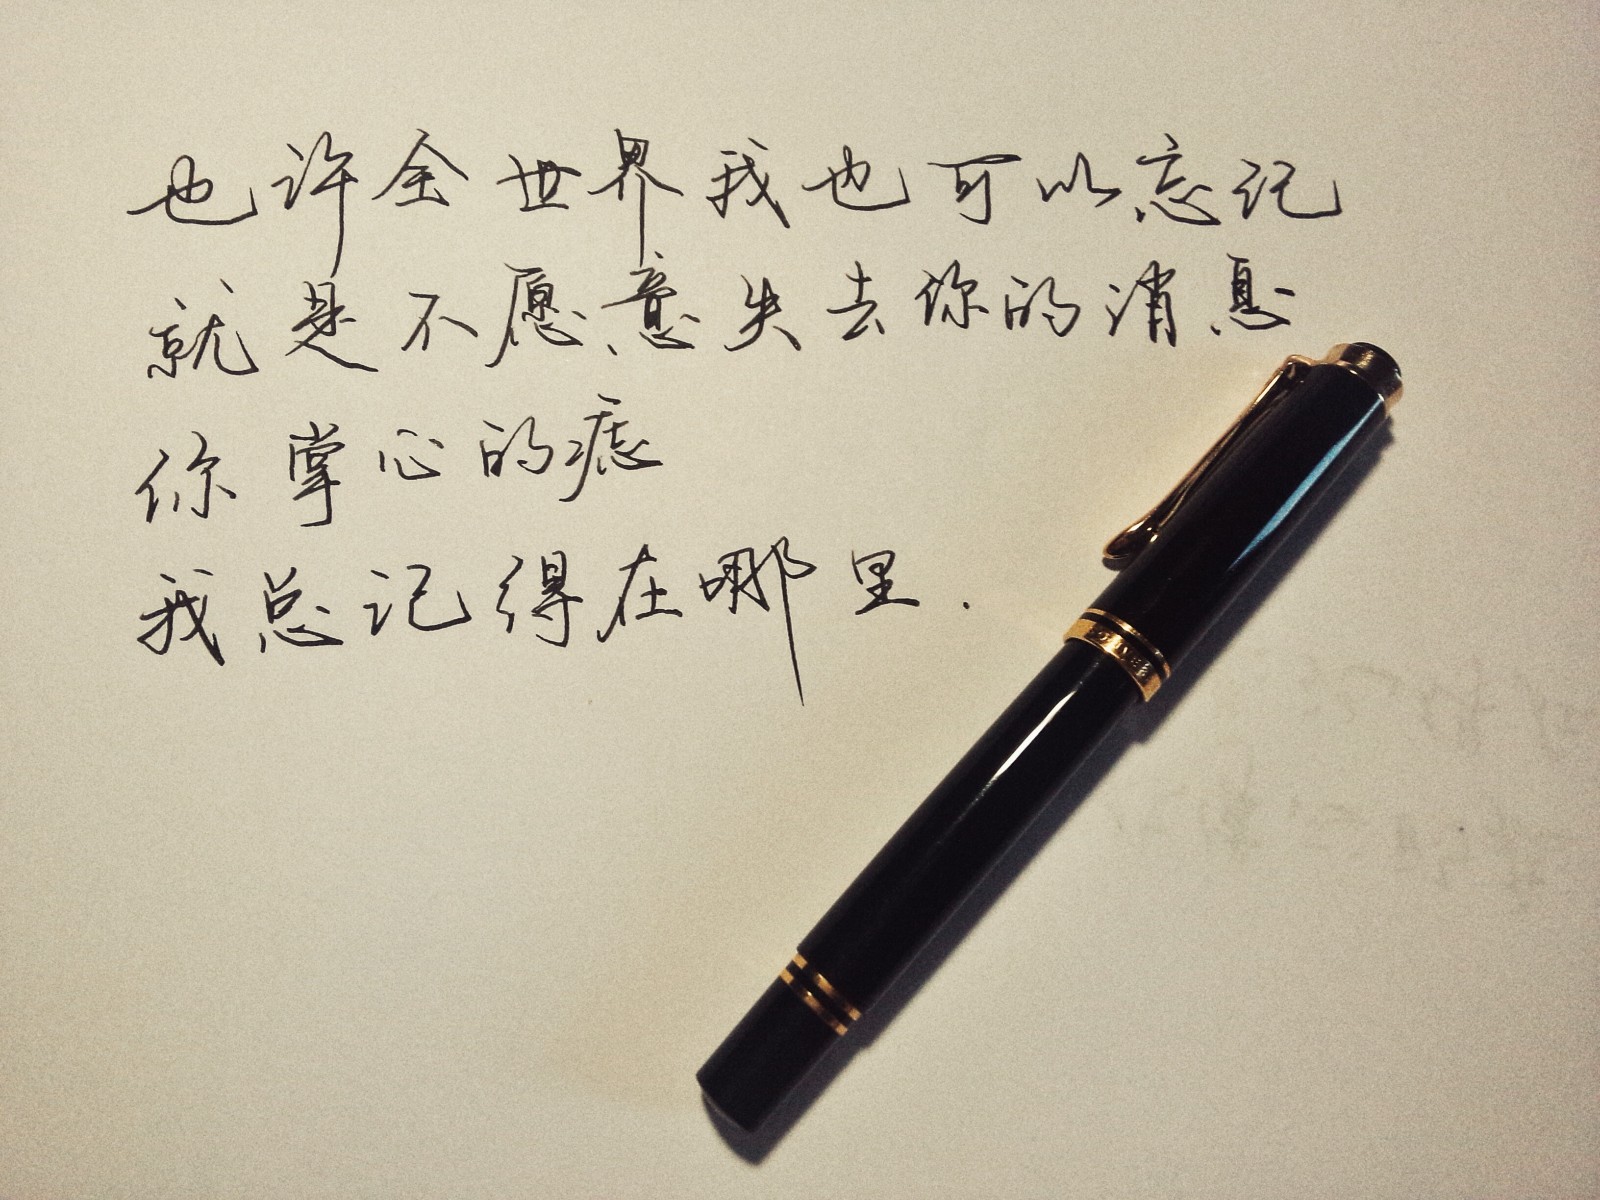 也许全世界我也可以忘记
就是不愿意失去你的消息
你掌心的痣
我总记得在哪里.